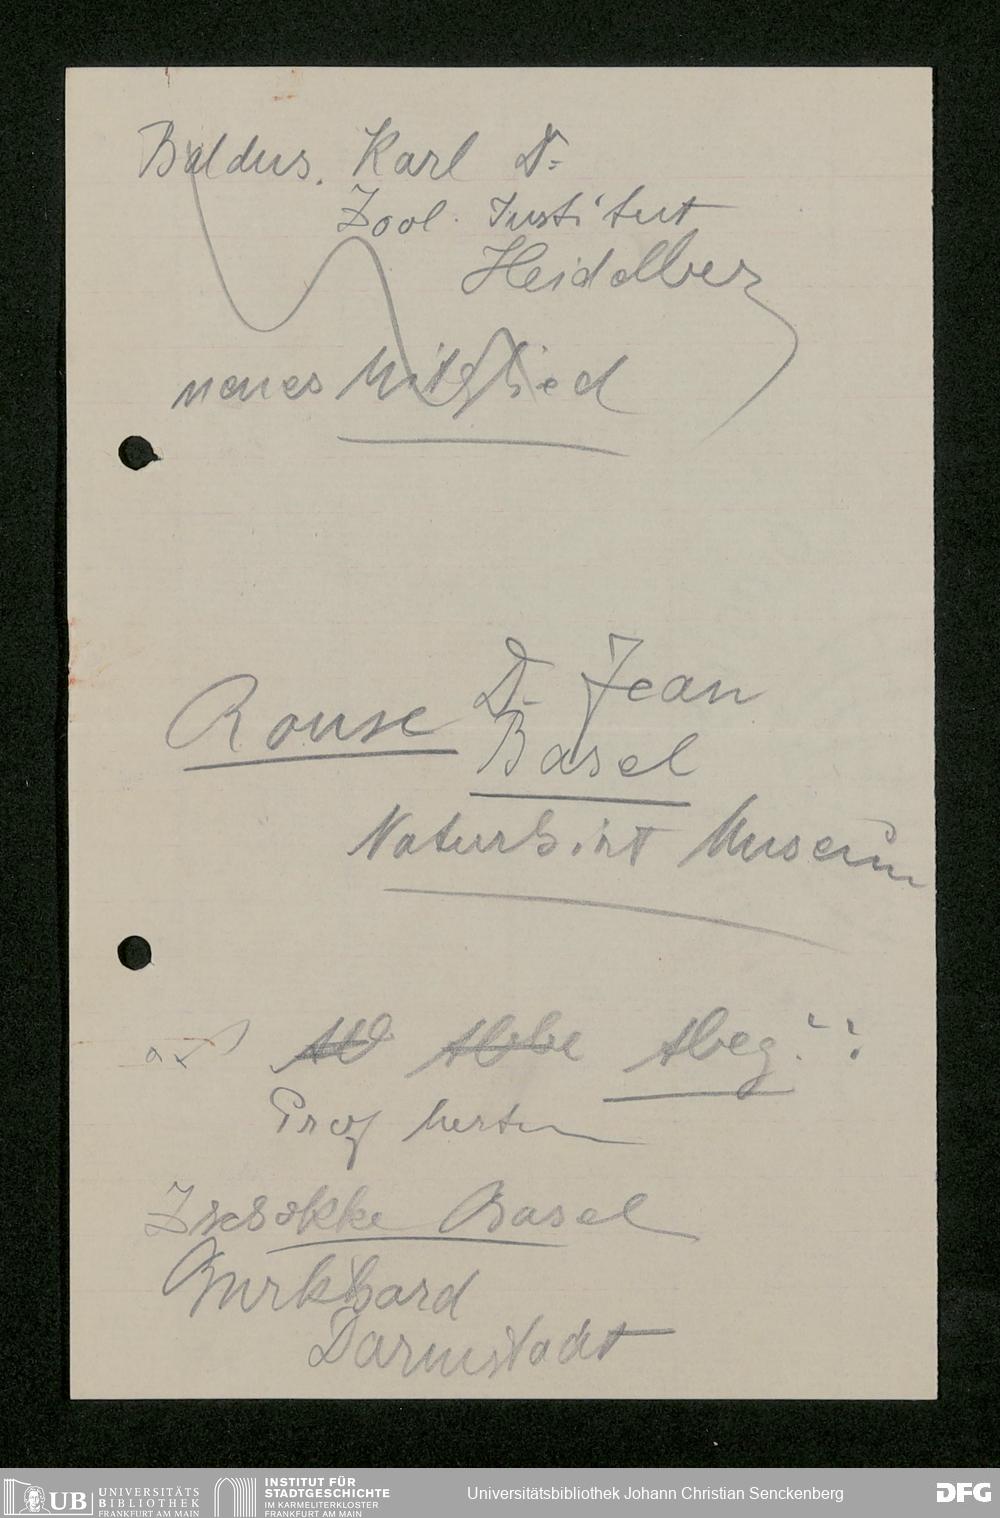 Baldus. Karl Dr.
Zool. Institut
Heidelberg
neues Mitglied
Rouse Dr. Jean
Basel
Naturhist Museum
Abbe Abeg.
Prof
Zschokke Basel
Burkhard
Darmstadt
UB UNIVERSITÄTS
BIBLIOTHEK
FRANKFURT AM MAIN
INSTITUT FÜR
STADTGESCHICHTE
IM KARMELITERKLOSTER
FRANKFURT AM MAIN
Universitätsbibliothek Johann Christian Senckenberg
DFG